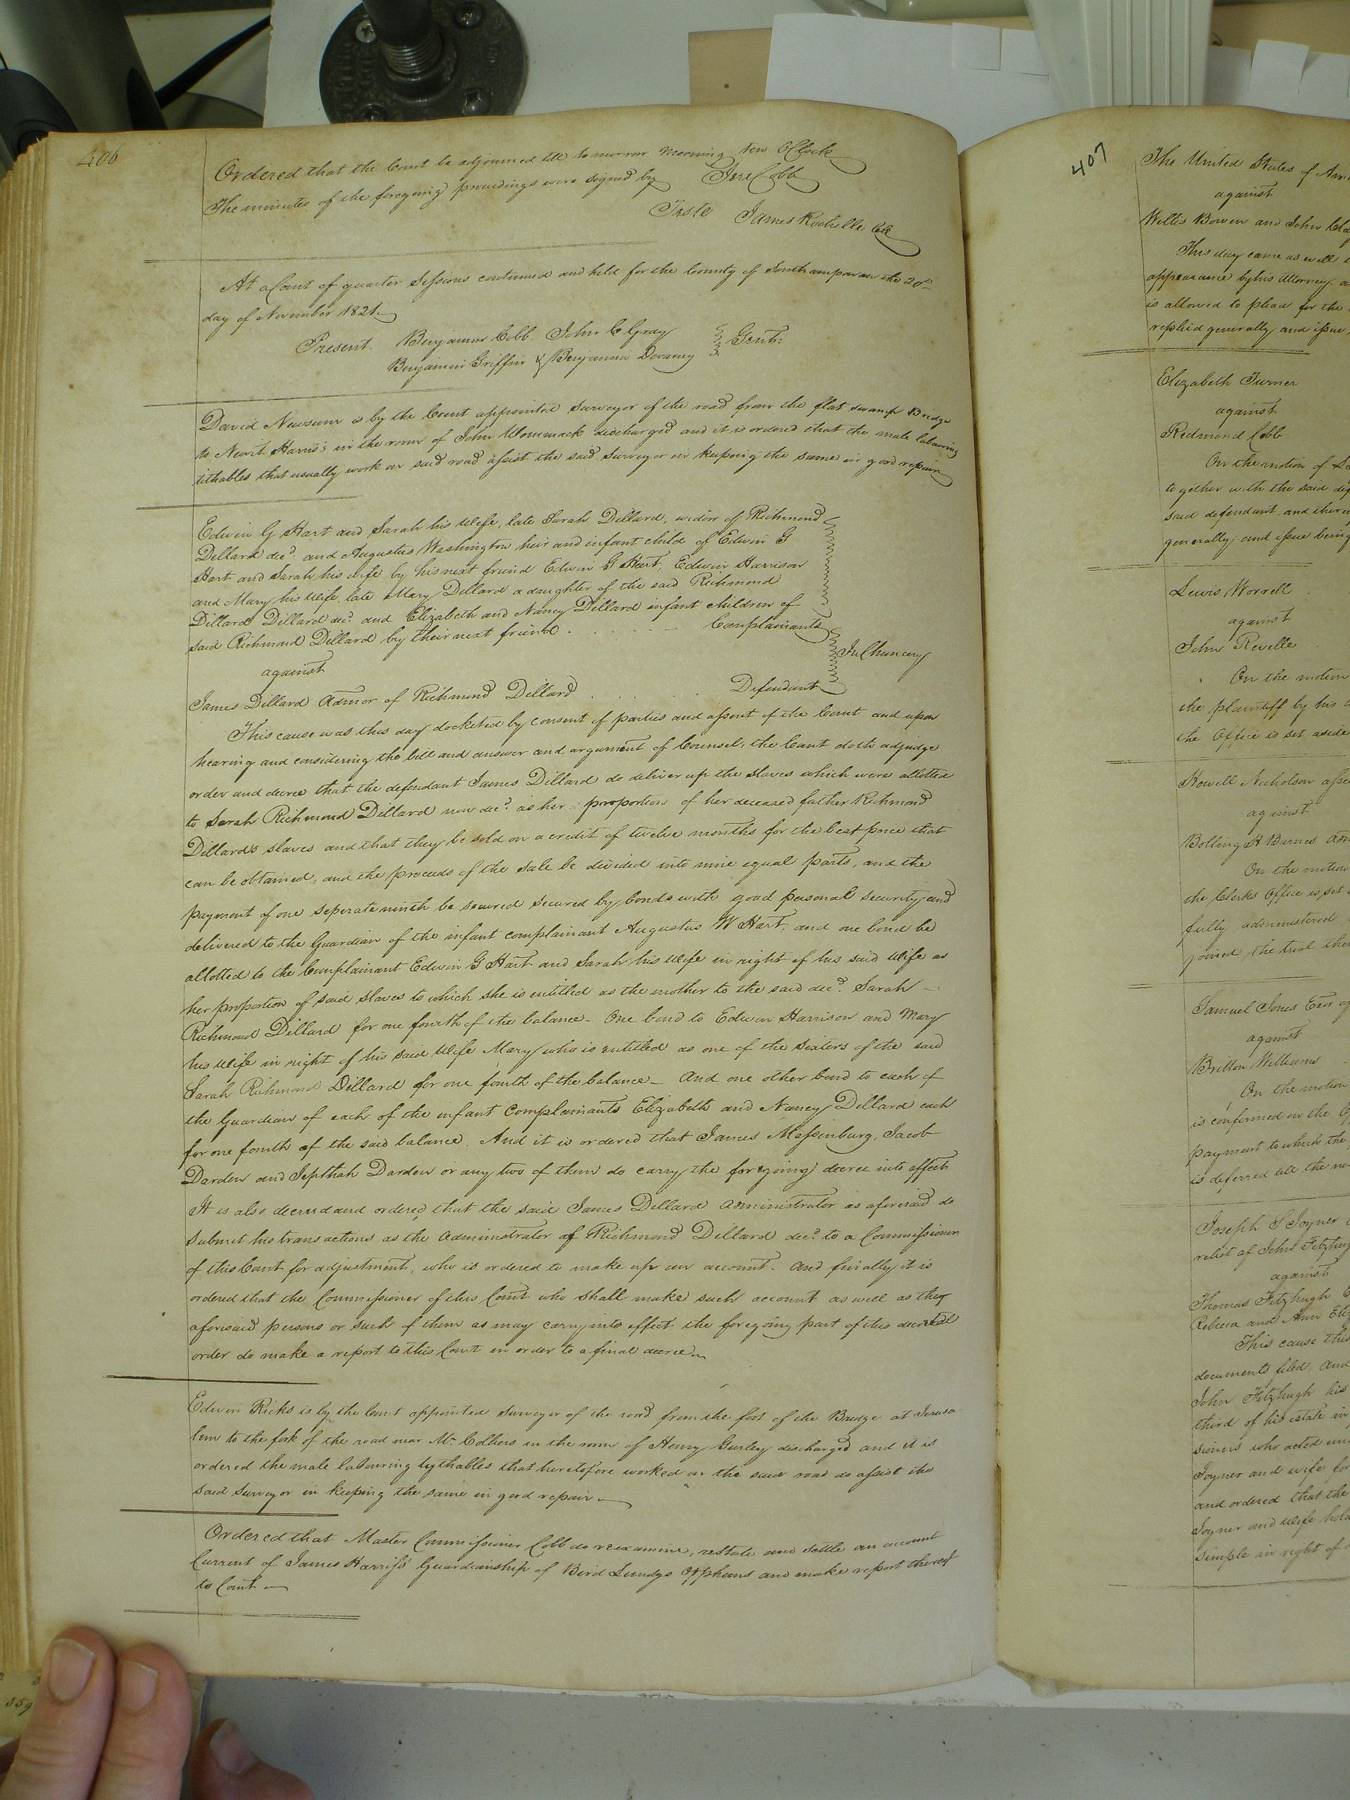 406
Ordered that the Court be adjourned till tomorrow morning ten OClock
The minutes of the foregoing proceedings were signed by Jere Cobb
Teste James Rochelle Clk
At a Court of quarter Sessions continued and held for the County of Southampton on the 20th
day of November 1821
Present. Benjamin Cobb. John C Gray
Benjamin Griffin & Benjamin Devaney Gent:
David Newsum is by the Court appointed Surveyor of the road from the flat swamp Bridge
to Newit Harris's in the room of John Wommack discharged and it is ordered that the male labouring
tithables that usually work on said road assist the said Surveyor in keeping the same in good repair
Edwin G Hart and Sarah his Wife, late Sarah Dillard, widow of Richmond
Dillard decd. and Augustus Washington heir and infant child of Edwin G
Hart and Sarah his wife by his next friend Edwin G Hart, Edwin Harrison
and Mary his Wife, late Mary Dillard a daughter of the said Richmond
Dillard Dillard decd. and Elizabeth and Nancy Dillard infant children of
said Richmond Dillard by their next friend . . . . . Complainants
against In Chancery
James Dillard Admor of Richmond Dillard . . . . . Defendant
This cause was this day docketed by consent of parties and assent of the Court and upon
hearing and considering the bill and answer and argument of Counsel, the Court doth adjudge
order and decree that the defendant James Dillard do deliver up the slaves which were allotted
to Sarah Richmond Dillard now decd. as her proportion of her deceased father Richmond
Dillards slaves and that they be sold on a credit of twelve months for the best price that
can be obtained, and the proceeds of the sale be divided into nine equal parts, and the
payment of one seperate ninth be secured secured by bonds with good personal security, and
delivered to the Guardian of the infant complainant Augustus W Hart, and one bond be
allotted to the Complainant Edwin G Hart and Sarah his Wife in right of his said Wife as
her proportion of said slaves to which she is entitled as the mother to the said decd. Sarah
Richmond Dillard for one fourth of the balance - One bond to Edwin Harrison and Mary
his Wife in right of his said Wife Mary who is entitled as one of the sisters of the said
Sarah Richmond Dillard for one fourth of the balance - And one other bond to each of
the Guardian of each of the infant complainants Elizabeth and Nancy Dillard each
for one fourth of the said balance. And it is ordered that James Massenburg, Jacob
Darden and Jepthah Darden or any two of them do carry the foregoing decree into effect.
It is also decreed and ordered that the said James Dillard Administrator as aforesaid do
submit his transactions as the Administrator of Richmond Dillard decd. to a Commissioner
of this Court for adjustment, who is ordered to make up an account. And finally it is
ordered that the Commissioner of this Court who shall make such account as well as they
aforesaid persons or such of them as may carry into effect the foregoing part of this decretal
order do make a report to this Court in order to a final decree
Edwin Ricks is by the Court appointed Surveyor of the road from the foot of the Bridge at Jerusa-
lem to the fork of the road near Mr. Colliers in the room of Henry Gurley discharged and it is
ordered the male labouring tythables that heretofore worked on the said road do assist the
said Surveyor in keeping the same in good repair
Ordered that Master Commissioner Cobb do reexamine, restate and settle an account
Current of James Harriss's Guardianship of Bird Lundys Orphans and make report thereof
to Court
407
The United States of Am
against
Willis Bowen and John
This day came as well
appearance by his Attorney
is allowed to plead for the
replied generally and issue
Elizabeth Turner
against
Redmond Cobb
On the motion of
together with the said
said defendant and
generally, and issue being
Lewis Worrell
against
John Revelle
On the motion
the plaintiff by his
the Office is set aside
Howell Nicholson
against
Bolling H Barnes
On the motion
the Clerks Office is set
fully administered
joined the trial
Samuel Jones Exor
against
Britton Williams
On the motion
is confirmed in the
payment to which the
is deferred till the
Joseph S Joyner
relict of John Fitzhugh
against
Thomas Fitzhugh
Rebecca and Ann
This cause this
documents filed, and
John Fitzhugh his
third of his estate in
sioners who acted
Joyner and wife for
and ordered that the
Joyner and Wife hold
simple in right of
359